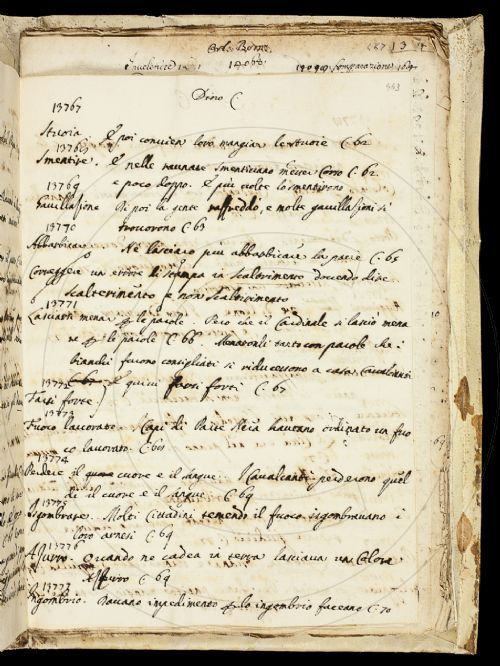 Carlo Borro.
1314
Invelenire
1406
14094
563
13767
Dino C.
Stuoia E poi convien loro mangiar le stuoie C. 62
13768
Smentire. E nelle raunate smentivano messer Corso C. 62.
e poco doppo. E più volte lo smentirono.
13769
Gavillazione Di poi la gente raffreddò, e molte gavillazioni si
trovorono C. 63
13770
Abbarbicare Nè lasciano più abbarbicare la pace C. 65
Correggere un errore di stampa in scalterimento dovendo dire
scalterimento e non scaltrimento
13771
Lasciarsi menar p le parole. Però che il Cardinale si lasciò mena
re p le parole C. 66 Menaronli tanto con parole che i
bianchi furono consigliati si riducessono a casa Cavalcanti
13772 C. 67 E quivi farsi forti C. 67
Farsi forte
13773
Fuoco lavorato. I Capi di Parte Nera havano ordinato un fuo
co lavorato. C. 68
13774
Perdere il cuore e il sangue. I Cavalcanti perderono quel
dì il cuore e il sangue C. 69
13775
Sgombrare. Molti Cittadini temendo il fuoco sgombravano i
loro arnesi C. 69
13776
Azurro. Quando ne cadea in terra lasciava un Colore
Azurro C. 69
13777
Ingombrio. Davano impedimento p lo ingombrio faceano C. 70